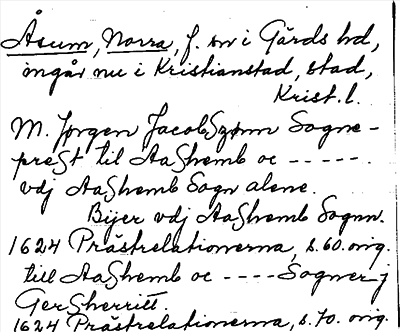 Åsum, Norra, f. sn i Gärds hd,
ingår nu i Kristianstad, stad,
Krist. l.
M. Jørgen JacobSzønn Sogne-
preSt til AaShemb oc -----.
vdj AaShemb Sogn alene.
Bÿer vdj AaShemb Sognn.
1624 Prästrelationerna, s. 60. orig.
till AaShemb oc ---- Sogner j
GerSherritt.
1624 Prästrelationerna, s. 70. orig.